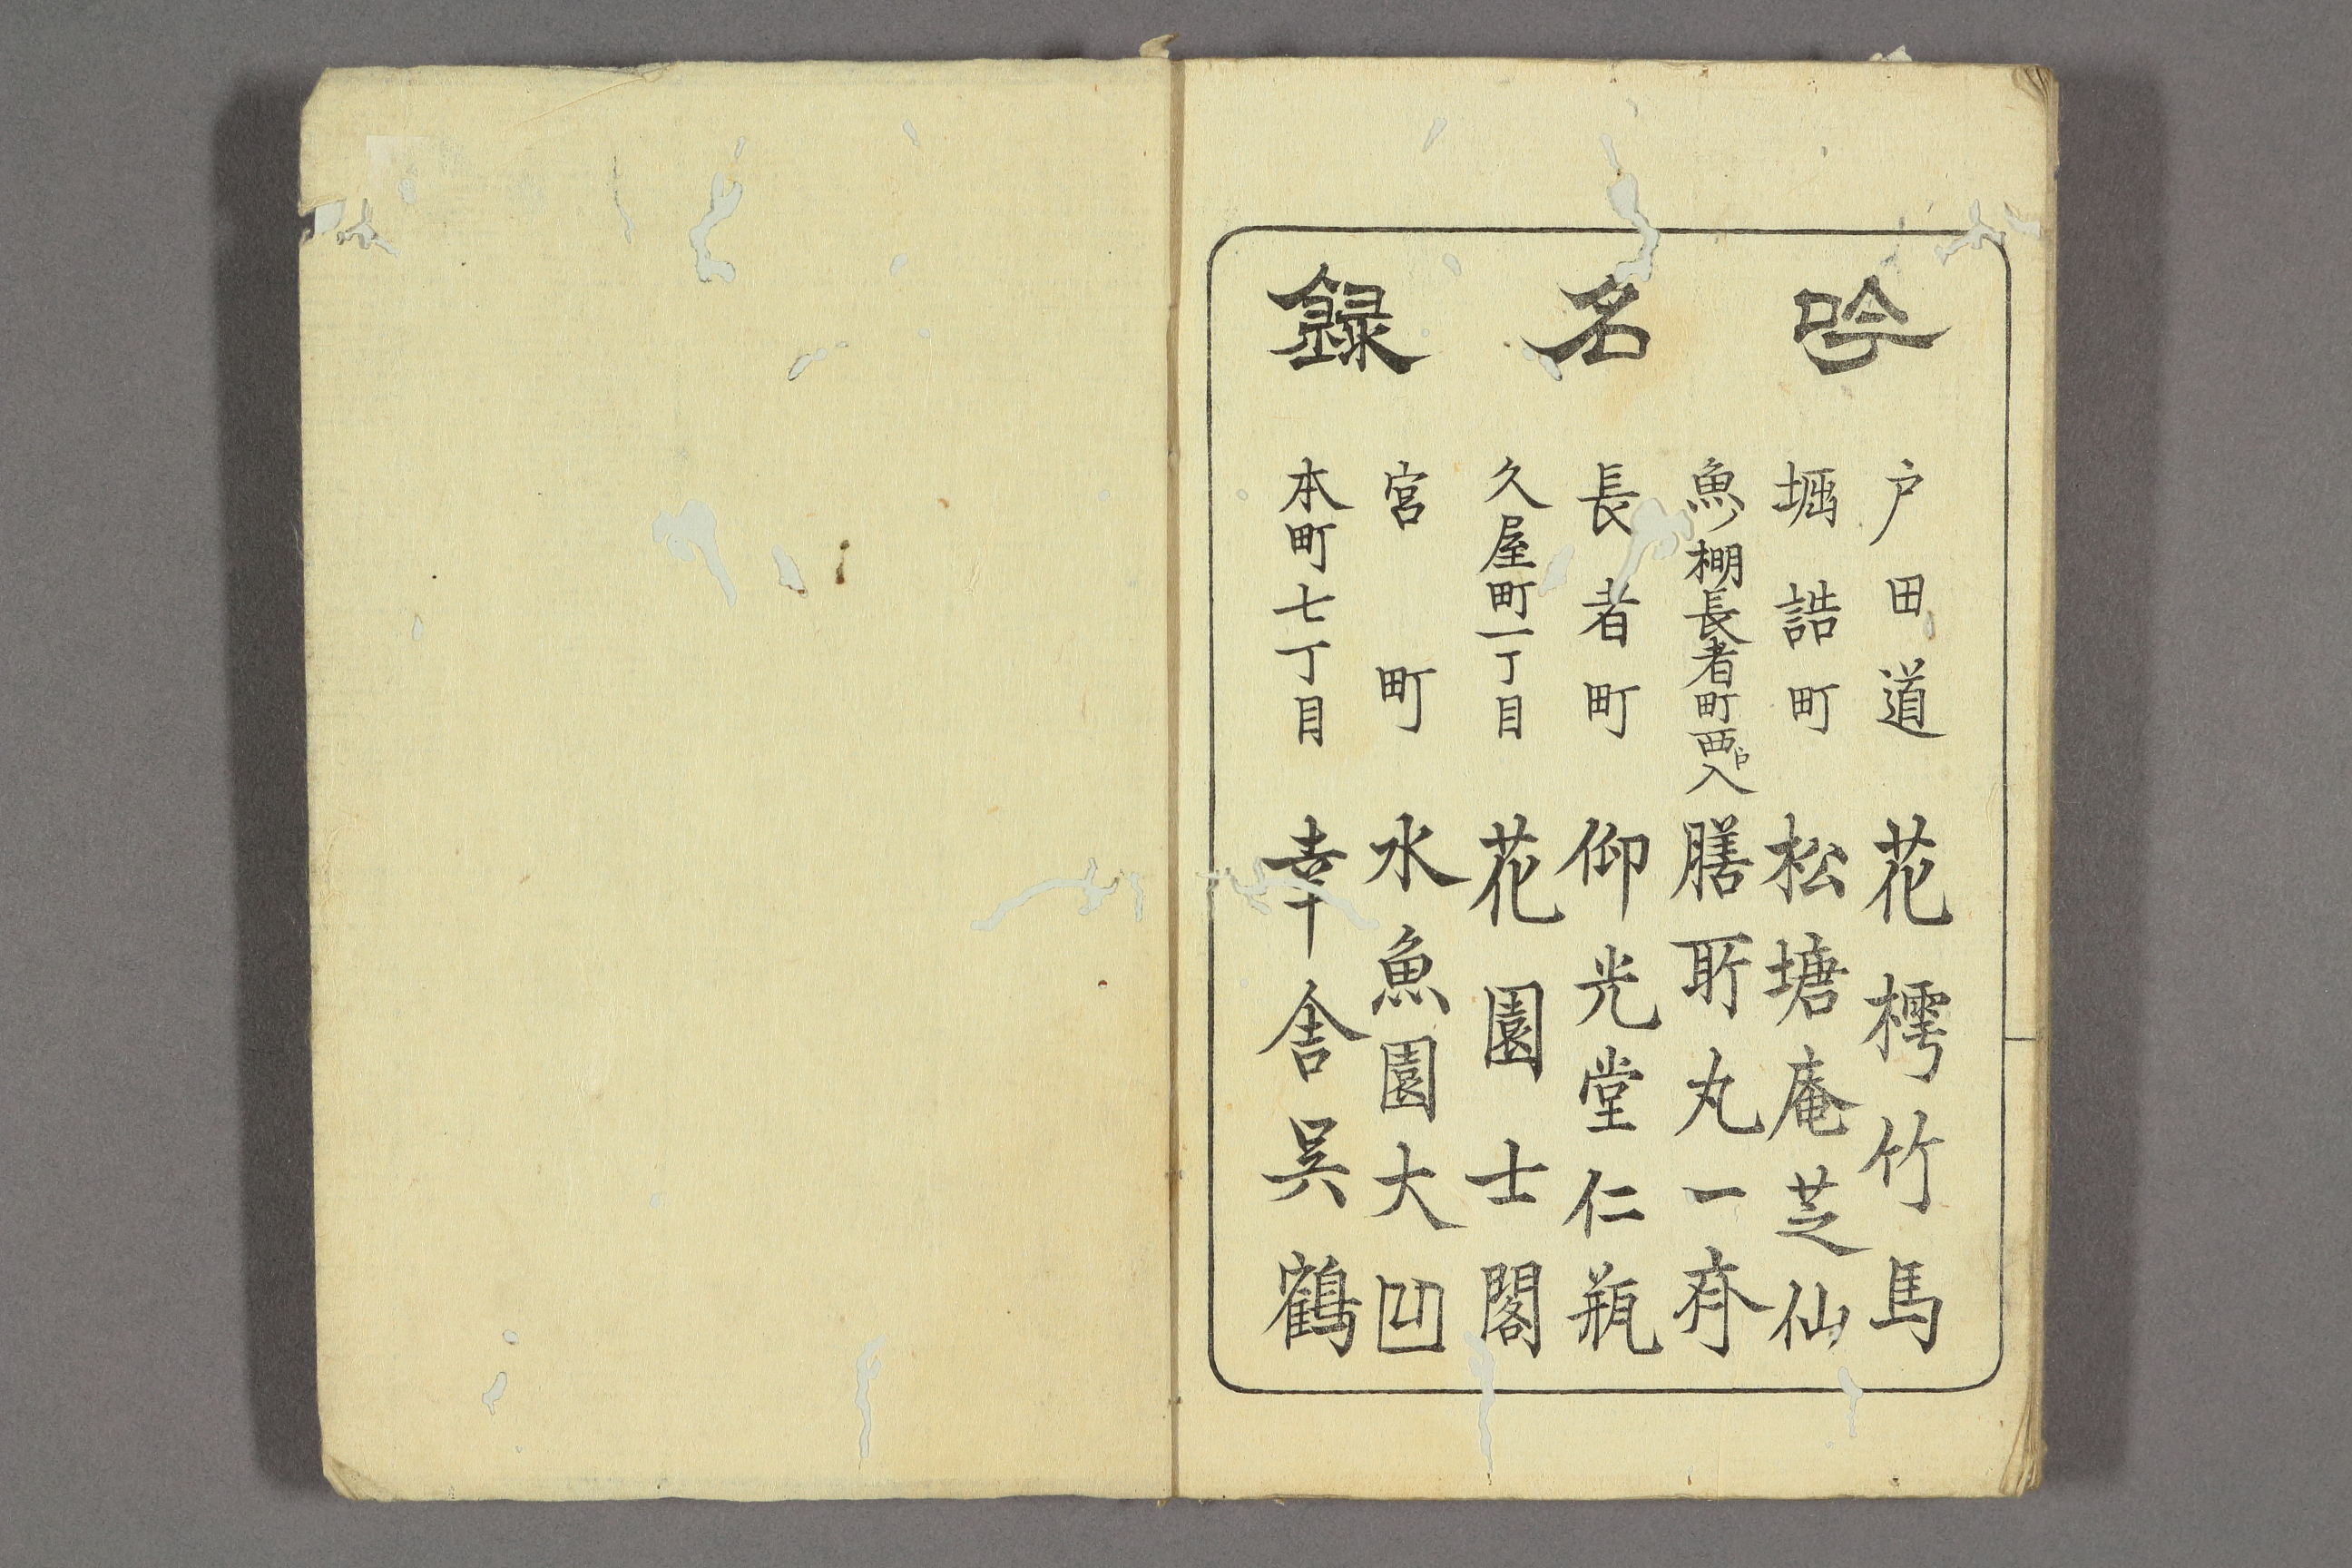 吟名録
戸田道 花樗竹馬
堀詰町 松塘庵芝仙
魚ノ棚長者町西ヘ入 膳所丸一斎
長者町 仰光堂仁瓶
久屋町一丁目 花園士閣
宮町 水魚園大凹
本町七丁目 幸舎呉鶴